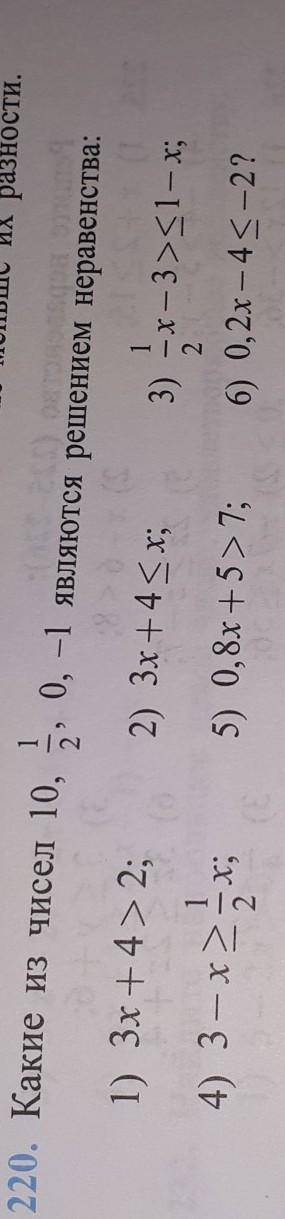 их разности.
220. Какие из чисел 10, 1/2, 0, −1 являются решением неравенства:
1) 3x + 4 > 2; 2) 3x + 4 ≤ x; 3) 1/2 x − 3 > ≤ 1 − x;
4) 3 − x ≥ 1/2 x; 5) 0,8x + 5 > 7; 6) 0,2x − 4 ≤ −2?